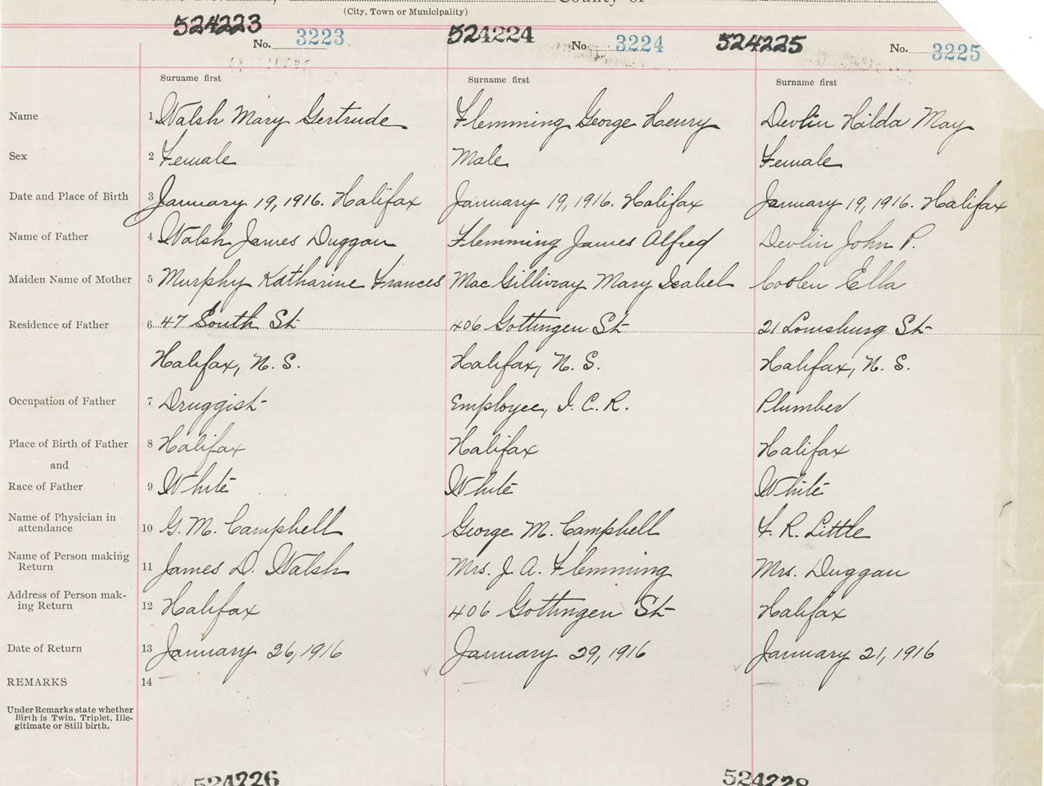 County of
(City, Town or Municipality)
524223 524224 524225
No. 3223 No 3224 No. 3225
Surname first Surname first Surname first
Name 1 Walsh Mary Gertrude Flemming George Henry Devlin Hilda May
Sex 2 Female Male Female
Date and Place of Birth 3 January 19, 1916. Halifax January 19, 1916. Halifax January 19, 1916. Halifax
Name of Father 4 Walsh James Duggan Flemming James Alfred Devlin John P.
Maiden Name of Mother 5 Murphy Katharine Frances Mac Gillivray Mary Isabel Coolen Ella
Residence of Father 6 47 South St 406 Gottingen St 21 Louisburg St
Halifax, N. S. Halifax, N. S. Halifax, N. S.
Occupation of Father 7 Druggist Employee, I. C. R. Plumber
Place of Birth of Father 8 Halifax Halifax Halifax
and
Race of Father 9 White White White
Name of Physician in
attendance 10 G. M. Campbell George M. Campbell F. R. Little
Name of Person making
Return 11 James D. Walsh Mrs. J. A. Flemming Mrs. Duggan
Address of Person mak-
ing Return 12 Halifax 406 Gottingen St Halifax
Date of Return 13 January 26, 1916 January 29, 1916 January 21, 1916
REMARKS 14
Under Remarks state whether
Birth is Twin, Triplet, Ille-
gitimate or Still birth.
524226 524228